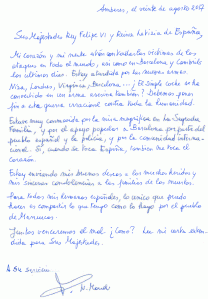 Amberes, el veinte de agosto 2017
Sus Majestades Rey Felipe VI y Reina Letizia de España,
Mi corazón y mi mente están con las víctimas de los
ataques en todo el mundo, así como en Barcelona y Cambrils
los últimos días. Estoy aturdido por las nuevas armas
Niza, Londres, Virginia, Barcelona, ... El simple coche se ha
convertido en un arma asesina también! Debemos poner
fin a esta guerra irracional contra toda la humanidad.
Estuve muy conmovido por la misa magnífica en la Sagrada
Familia, y por el apoyo popular a Barcelona por parte del
pueblo español y la policía, y por la comunidad interna-
cional. Sí, cuando se toca España, también me toca el
corazón.
Estoy enviando mis buenos deseos a los muchos heridos y
mis sinceras condolencias a las familias de los muertos.
Para todos mis hermanos españoles, lo único que puedo
hacer es compartir lo que tengo como lo hago por el pueblo
de
Juntos venceremos el mal. ¿Como? Lea mi carta exten-
dida para Sus Majestades.
A Su servicio